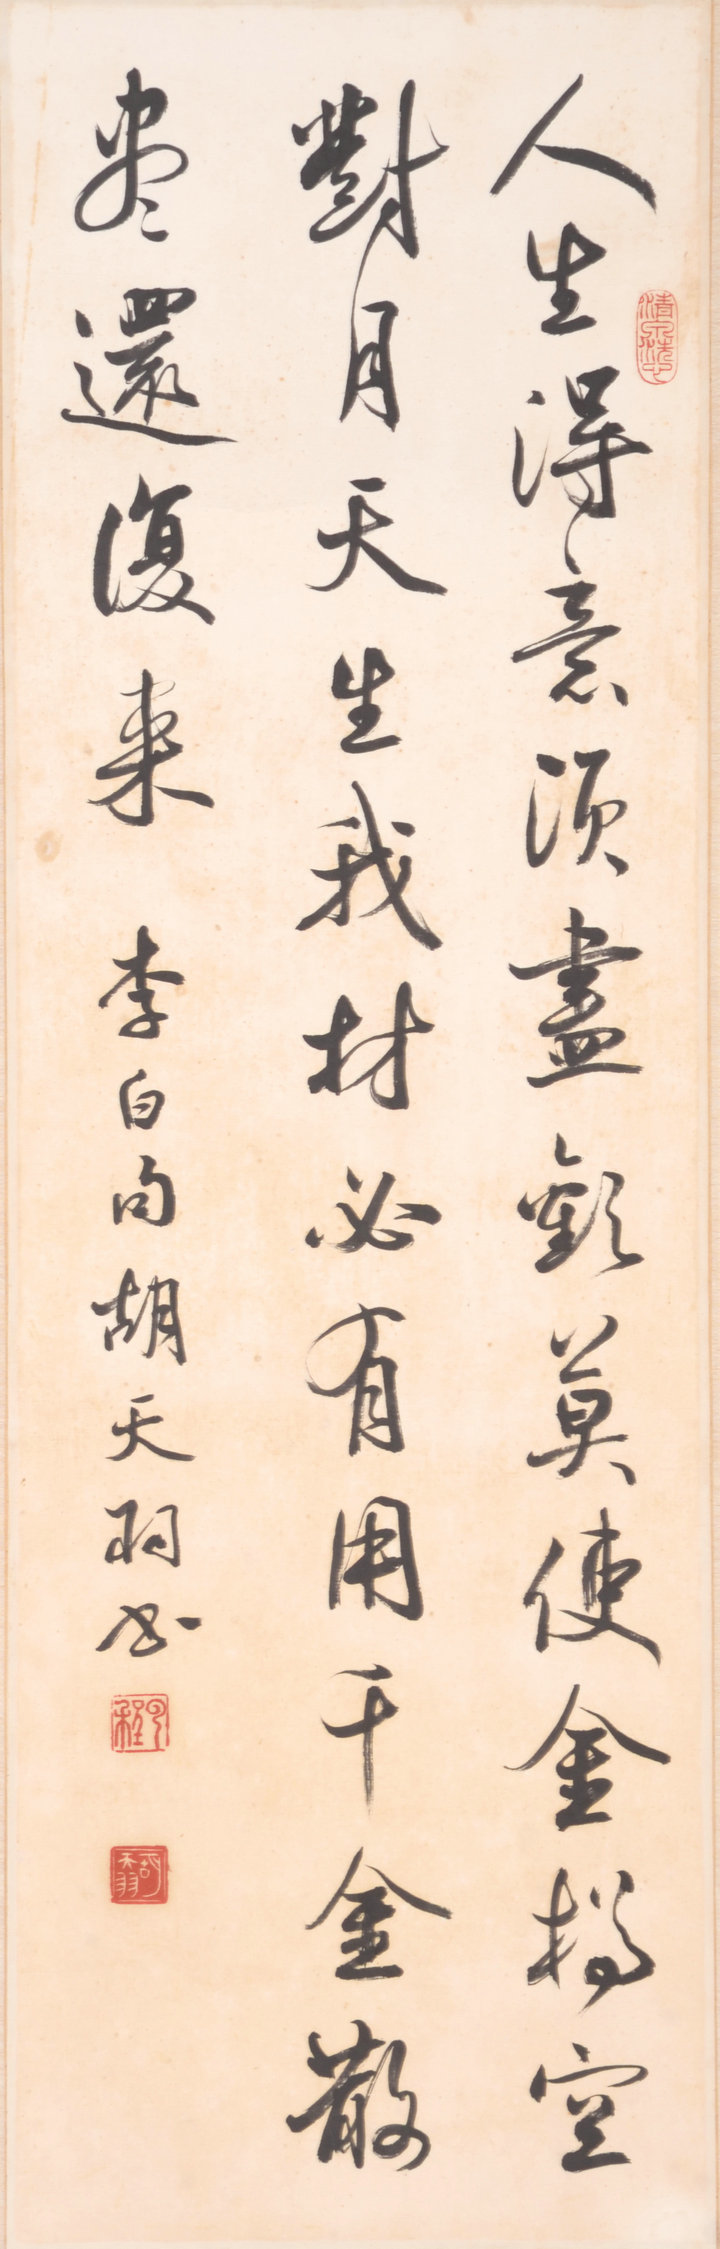 人生得意須盡歡莫使金樽空
對月天生我材必有用千金散
尽還復来 李白句胡天羽书
胡天羽